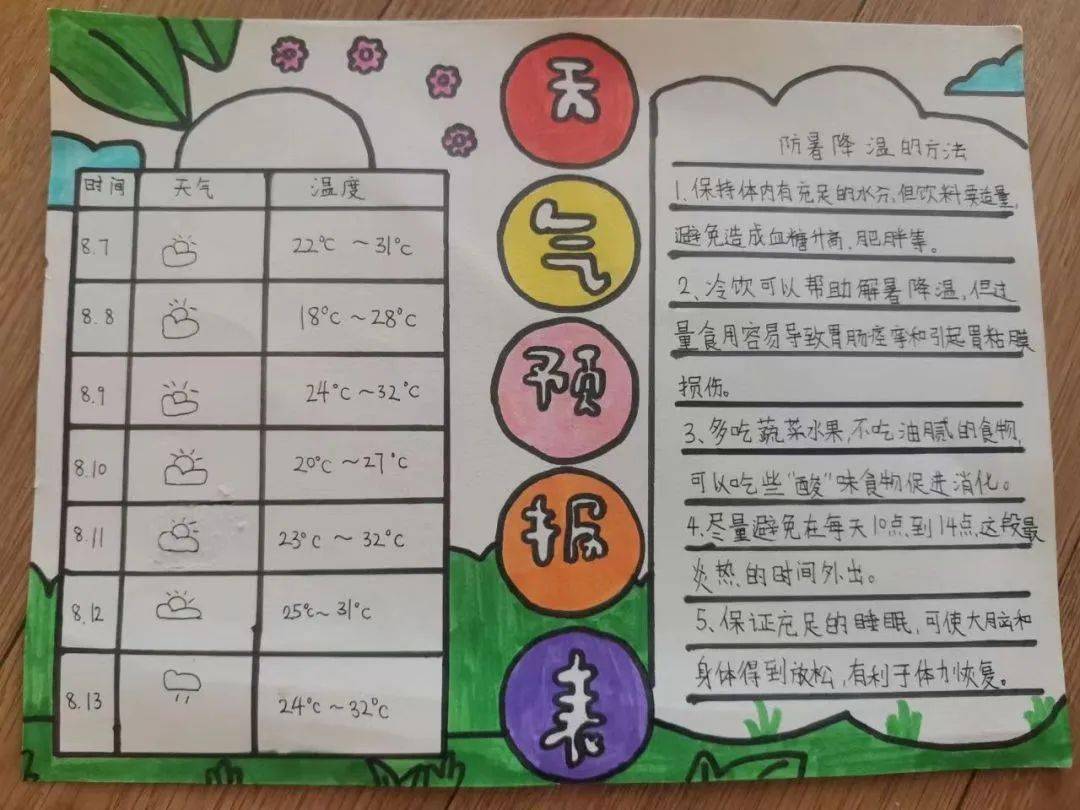 时间 天气 温度
8.7 22℃ ~31℃
8.8 18℃~28℃
8.9 24℃~32℃
8.10 20℃~27℃
8.11 23℃~32℃
8.12 25℃~31℃
8.13 24℃~32℃
天
气
预
报
表
防暑降温的方法
1.保持体内有充足的水分,但饮料要适量,
避免造成血糖升高,肥胖等。
2、冷饮可以帮助解暑降温,但过
量食用容易导致胃肠痉挛和引起胃粘膜
损伤。
3、多吃蔬菜水果,不吃油腻的食物,
可以吃些"酸"味食物促进消化。
4.尽量避免在每天10点到14点这段最
炎热的时间外出。
5、保证充足的睡眠,可使大脑和
身体得到放松,有利于体力恢复。